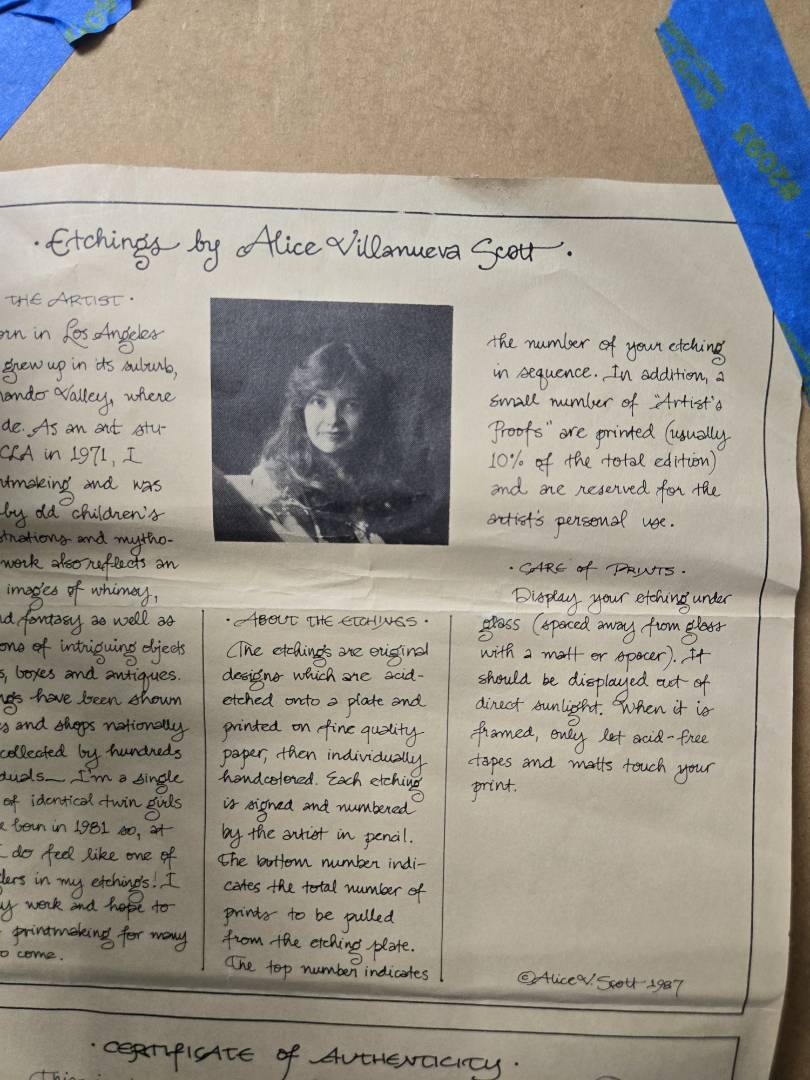 · Etchings by Alice Villanueva Scott ·
THE ARTIST ·
orn in Los Angeles
grew up in its suburb,
nando Valley, where
de. As an art stu-
CLA in 1971, I
ntmaking and was
by old children's
strations and mytho-
work also reflects an
images of whimsy,
nd fantasy as well as
ons of intriguing objects
s, boxes and antiques.
ngs have been shown
s and shops nationally
collected by hundreds
duals— I'm a single
of identical twin girls
e born in 1981 so, at
I do feel like one of
ders in my etchings! I
y work and hope to
printmaking for many
o come.
· ABOUT THE ETCHINGS ·
The etchings are original
designs which are acid-
etched onto a plate and
printed on fine quality
paper, then individually
handcolored. Each etching
is signed and numbered
by the artist in pencil.
The bottom number indi-
cates the total number of
prints to be pulled
from the etching plate.
The top number indicates
the number of your etching
in sequence. In addition, a
small number of "Artist's
Proofs" are printed (usually
10% of the total edition)
and are reserved for the
artist's personal use.
· CARE of PRINTS ·
Display your etching under
glass (spaced away from glass
with a matt or spacer). It
should be displayed out of
direct sunlight. When it is
framed, only let acid-free
tapes and matts touch your
print.
©Alice V. Scott 1987
· CERTIFICATE of AUTHENTICITY ·
#2093